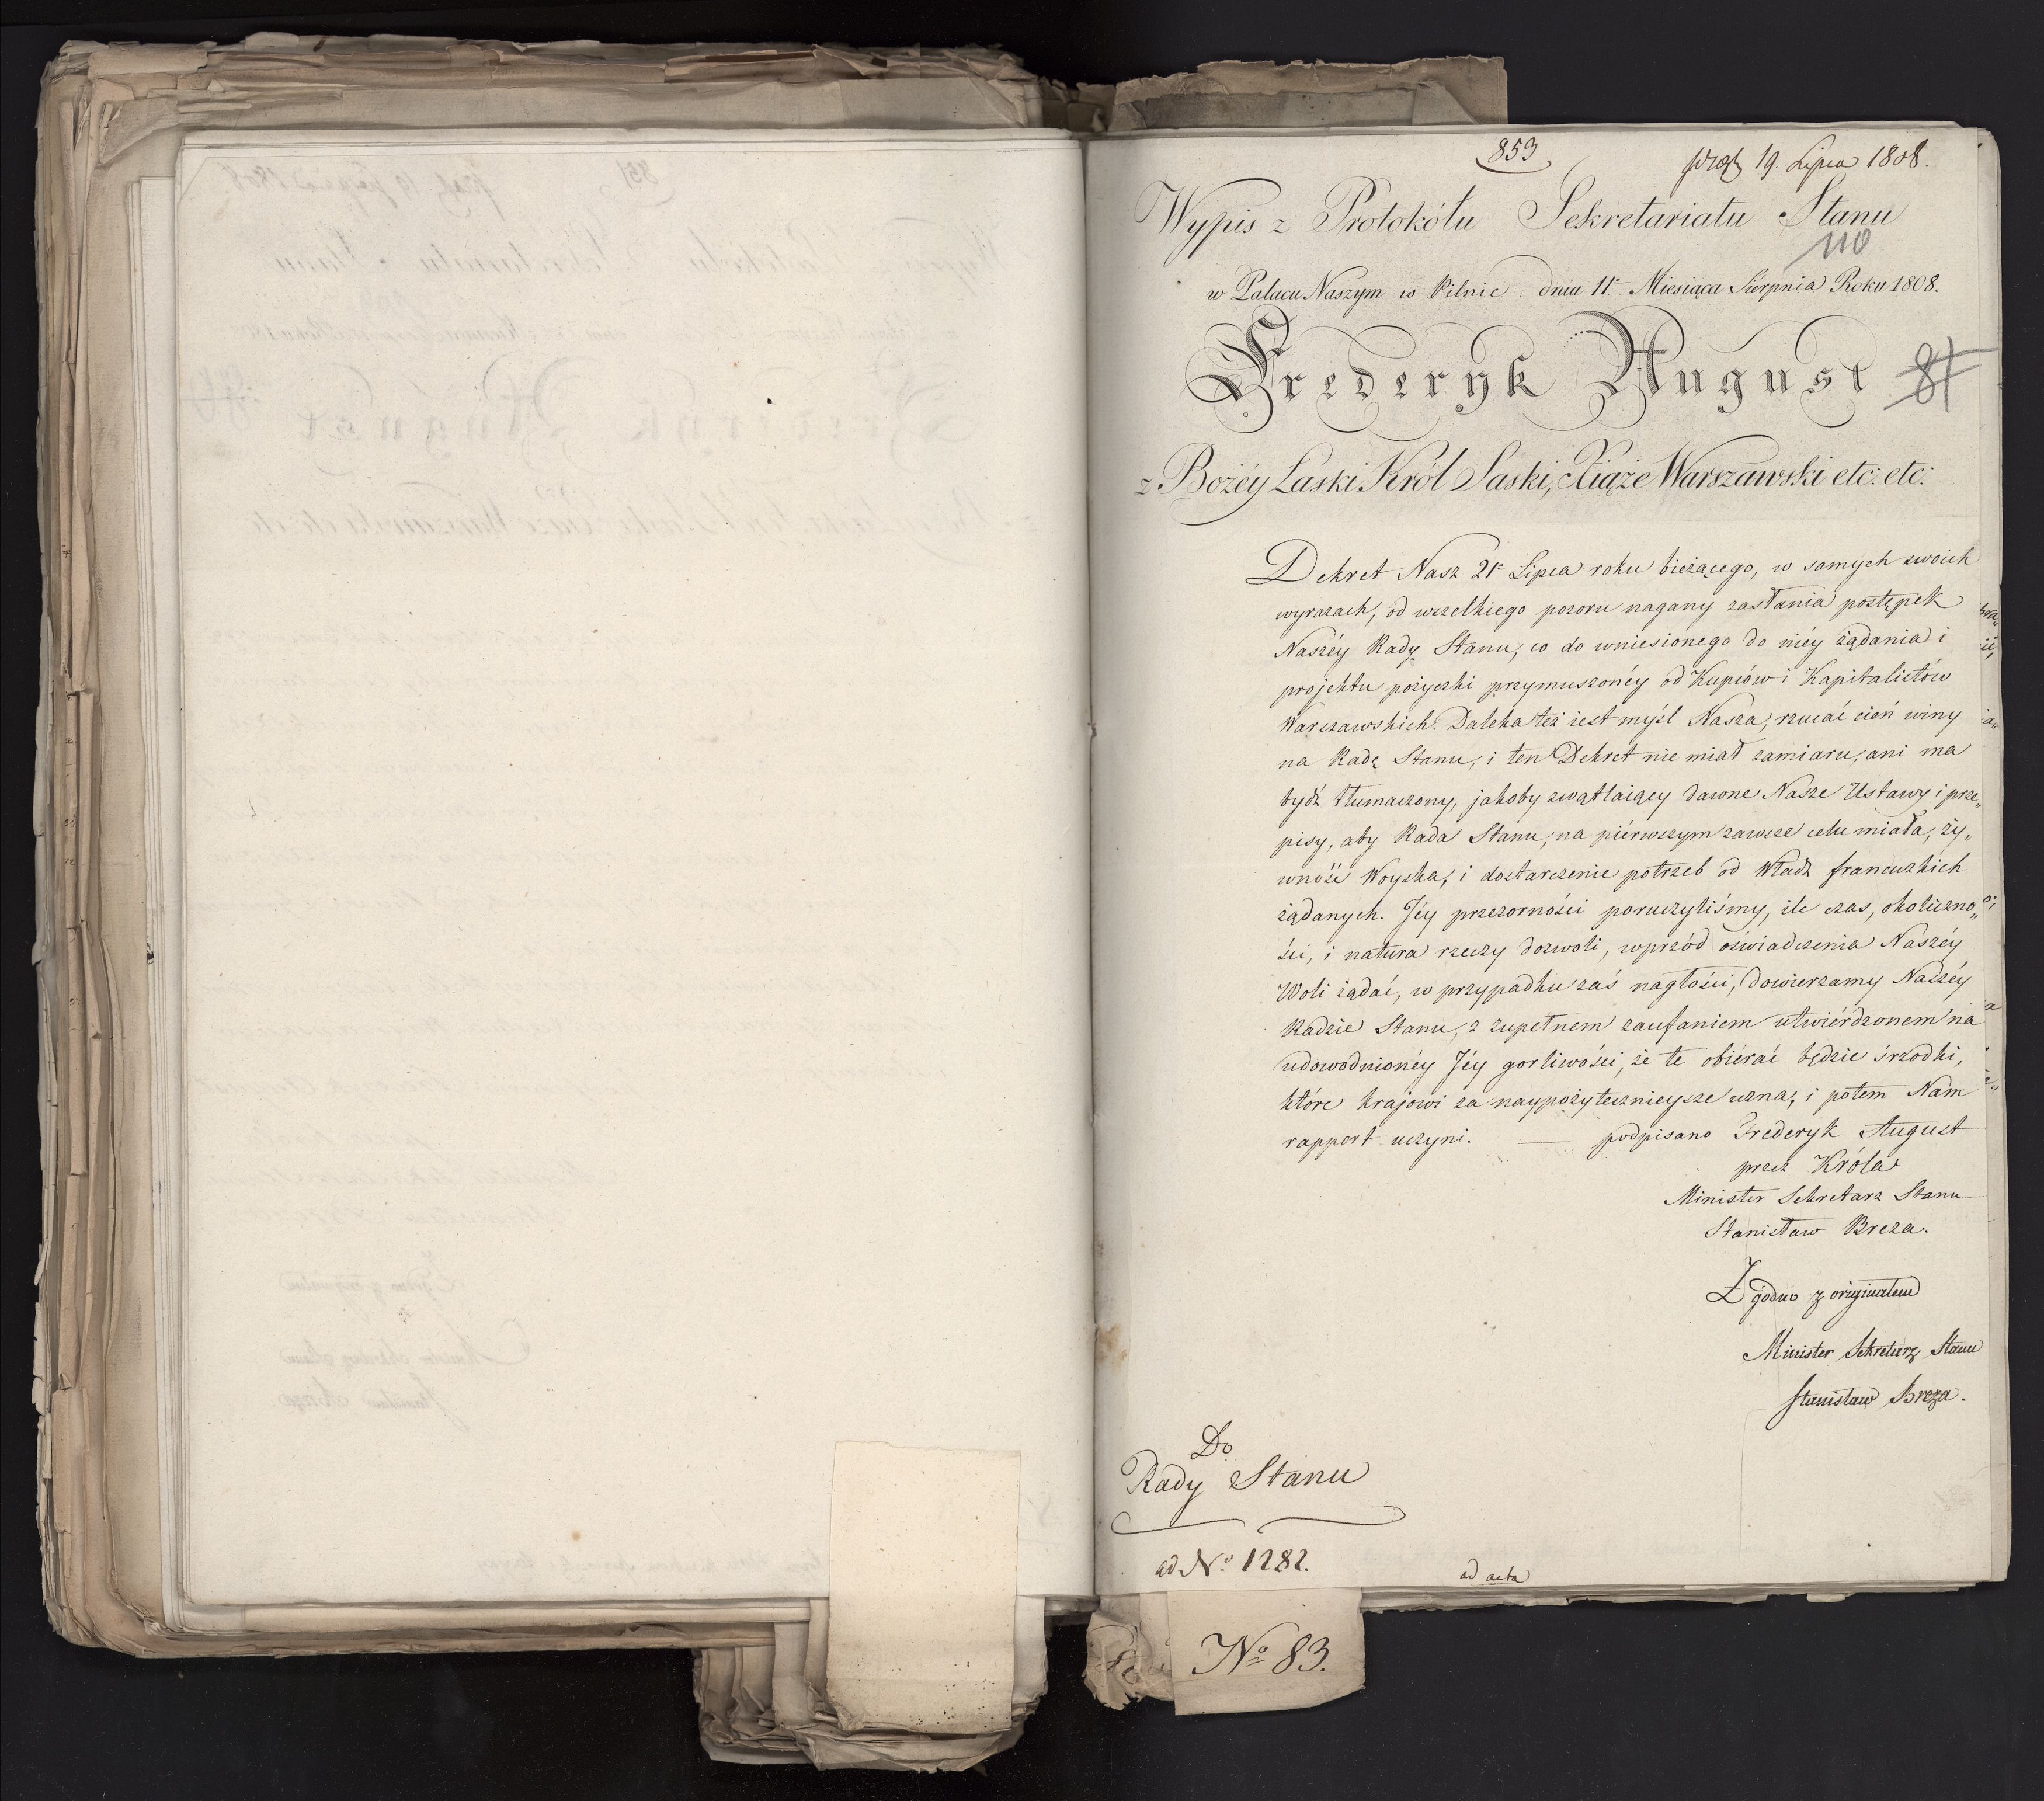 853
19. Lipca 1808.
Wypis z Protokółu Sekretariatu Stanu
110
w Pałacu Naszym w Pilnic dnia 11º Miesiąca Sierpnia Roku 1808.
Frederyk August
z Bożéy Łaski Król Saski, Xiąże Warszawski etc: etc:
Dekret Nasz 21º Lipca roku bieżącego, w samych swoich
wyrazach, od wszelkiego pozoru nagany zasłania postępek
Naszéy Rady Stanu, co do wniesionego do niéy żądania i
projektu pożyczki przymuszonéy od Kupców i Kapitalistów
Warszawskich. Daleka też iest myśl Nasza, rzucać cień winy
na Radę Stanu, i ten Dekret nie miał zamiaru, ani ma
bydź tłumaczony, jakoby zwątlaiący dawne Nasze Ustawy i prze„
pisy, aby Rada Stanu, na piérwszym zawsze celu miała, ży„
wność Woyska, i dostarczenie potrzeb od Władz francuzkich
żądanych. Jéy przezorności poruczyliśmy, ile czas, okoliczno„
ści, i natura rzeczy dozwoli, wprzód oświadczenia Naszéy
Woli żądać, w przypadku zaś nagłości, dowierzamy Naszéy
Radzie Stanu, z zupełnem zaufaniem utwiérdzonem na
udowodnionéy Jéy gorliwości, że te obiérać będzie śrzodki,
które krajowi za naypożytecznieysze uzna, i potem Nam
rapport uczyni. — podpisano Frederyk August
przez Króla
Minister Sekretarz Stanu
Stanisław Breza.
Zgodno z originałem
Minister Sekretarz Stanu
Stanisław Breza.
Do
Rady Stanu
ad Nº 1282.
ad acta
Nº 83.